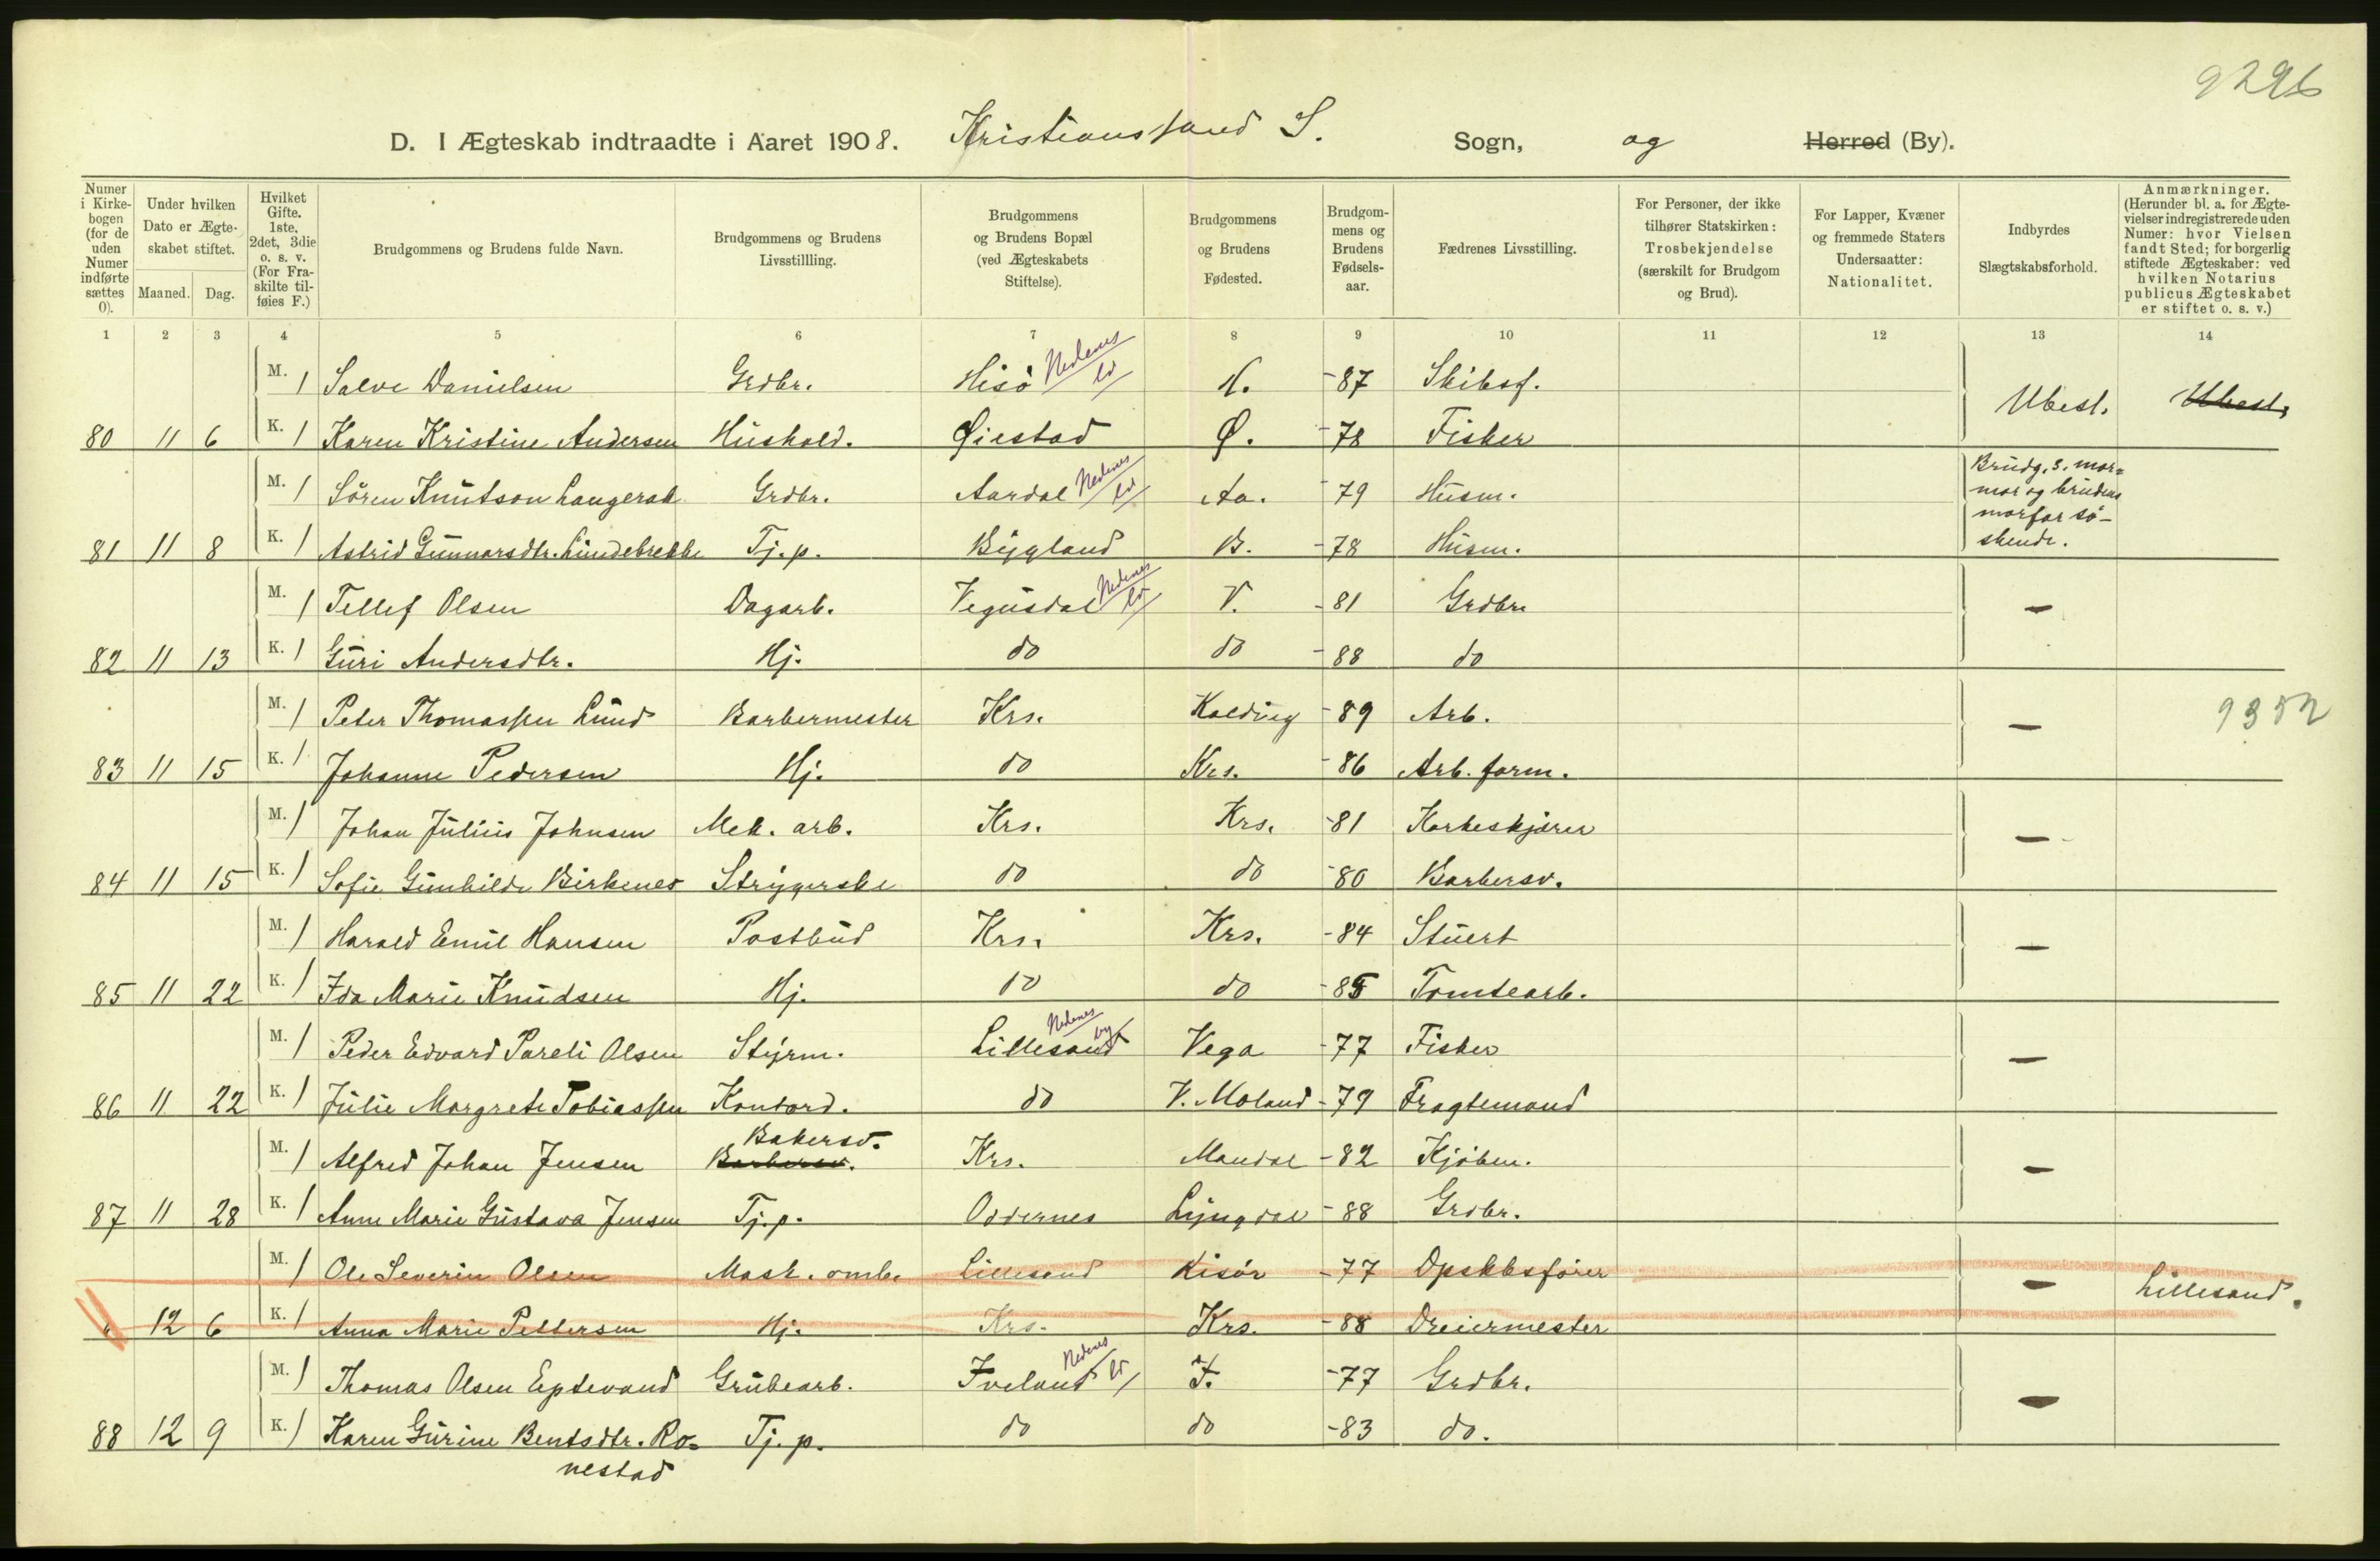 9296
D. I Ægteskab indtraadte i Aaret 1908. Kristianssand S. Sogn, og Herred (By).
Numer i Kirkebogen (for de uden Numer indførte sættes 0).
Under hvilken Dato er Ægteskabet stiftet.
Maaned. Dag.
Hvilket Gifte. 1ste, 2det, 3die o. s. v. (For Fraskilte tilføies F.)
Brudgommens og Brudens fulde Navn.
Brudgommens og Brudens Livsstillling.
Brudgommens og Brudens Bopæl (ved Ægteskabets Stiftelse).
Brudgommens og Brudens Fødested.
Brudgommens og Brudens Fødselsaar.
Fædrenes Livsstilling.
For Personer, der ikke tilhører Statskirken: Trosbekjendelse (særskilt for Brudgom og Brud).
For Lapper, Kvæner og fremmede Staters Undersaatter: Nationalitet.
Indbyrdes Slægtskabsforhold.
Anmærkninger. (Herunder bl. a. for Ægtevielser indregistrerede uden Numer: hvor Vielsen fandt Sted; for borgerlig stiftede Ægteskaber: ved hvilken Notarius publicus Ægteskabet er stiftet o. s. v.)
1 2 3 4 5 6 7 8 9 10 11 12 13 14
M. 1 Salve Danielsen Grdbr. Hisö Nedenes ld H. -87 Skibsf. Ubesl. Ubesl.
80 11 6 K. 1 Karen Kristine Andersen Hushold. Øiestad Ø. -78 Fisker
M. 1 Sören Knutson Langerak Grdbr. Aardal Nedenes ld Aa. -79 Husm. Brudg.s. mormor og brudens morfar söskende.
81 11 8 K. 1 Astrid Gunnarsdtr. Lindebrekke Tj. p. Bygland B. -78 Husm.
M. 1 Tellef Olsen Dagarb. Vegusdal Nedenes ld V. -81 Grdbr. —
82 11 13 K. 1 Guri Andersdtr. Hj. do do -88 do
M. 1 Peter Thomassen Lund Barbermester Krs. Kolding -89 Arb. — 9352
83 11 15 K. 1 Johanne Pedersen Hj. do Krs. -86 Arb. form.
M. 1 Johan Julius Johnsen Mek. arb. Krs. Krs. -81 Korkeskjærer —
84 11 15 K. 1 Sofie Gunhilde Birkenes Strygerske do do -80 Barbersv.
M. 1 Harald Emil Hansen Postbud Krs. Krs. -84 Stuert —
85 11 22 K. 1 Ida Marie Knudsen Hj. do do -85 Tomtearb.
M. 1 Peder Edvard Pareli Olsen Styrm. Lillesand Nedenes by Vega -77 Fisker —
86 11 22 K. 1 Julie Margrete Tobiassen Kontord. do V. Moland -79 Fragtemand
M. 1 Alfred Johan Jensen Barbersv. Bakersv. Krs. Mandal -82 Kjöbm. —
87 11 28 K. 1 Anne Marie Gustava Jensen Tj. p. Oddernes Lyngdal -88 Grdbr.
M. 1 Ole Severin Olsen Mask. omb. Lillesand Risör -77 Opskbsförer — Lillesand.
" 12 6 K. 1 Anna Marie Pettersen Hj. Krs. Krs. -88 Dreiermester
M. 1 Thomas Olsen Eptevand Grubearb. Iveland Nedenes ld I. -77 Grdbr. —
88 12 9 K. 1 Karen Gurine Bentsdtr. Ro= Tj. p. do do -83 do.
nestad